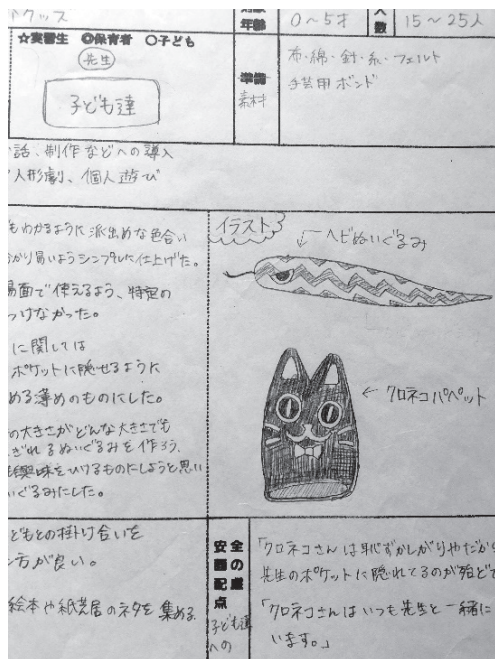 グッズ
年齢
0～5才
人数
15～25人
☆実習生 ◎保育者 ○子ども
先生
子ども達
準備
素材
布・綿・針・糸・フェルト
手芸用ボンド
話、制作などへの導入
人形劇、個人遊び
もわかるように派出めな色合い
かり易いようシンプルに仕上げた。
場面で使えるよう、特定の
つけなかった。
に関しては
ポケットに隠せるように
める薄めのものにした。
の大きさがどんな大きさでも
ぎれるぬいぐるみを作ろう、
興味をひけるものにしようと思い
いぐるみにした。
イラスト
←ヘビぬいぐるみ
←クロネコパペット
どもとの掛け合いを
方が良い。
絵本や紙芝居のネタを集める
安全面の配慮点
子ども達への
「クロネコさんは恥ずかしがりやだから
先生のポケットに隠れてるのが殆どで
「クロネコさんはいつも先生と一緒に
います。」